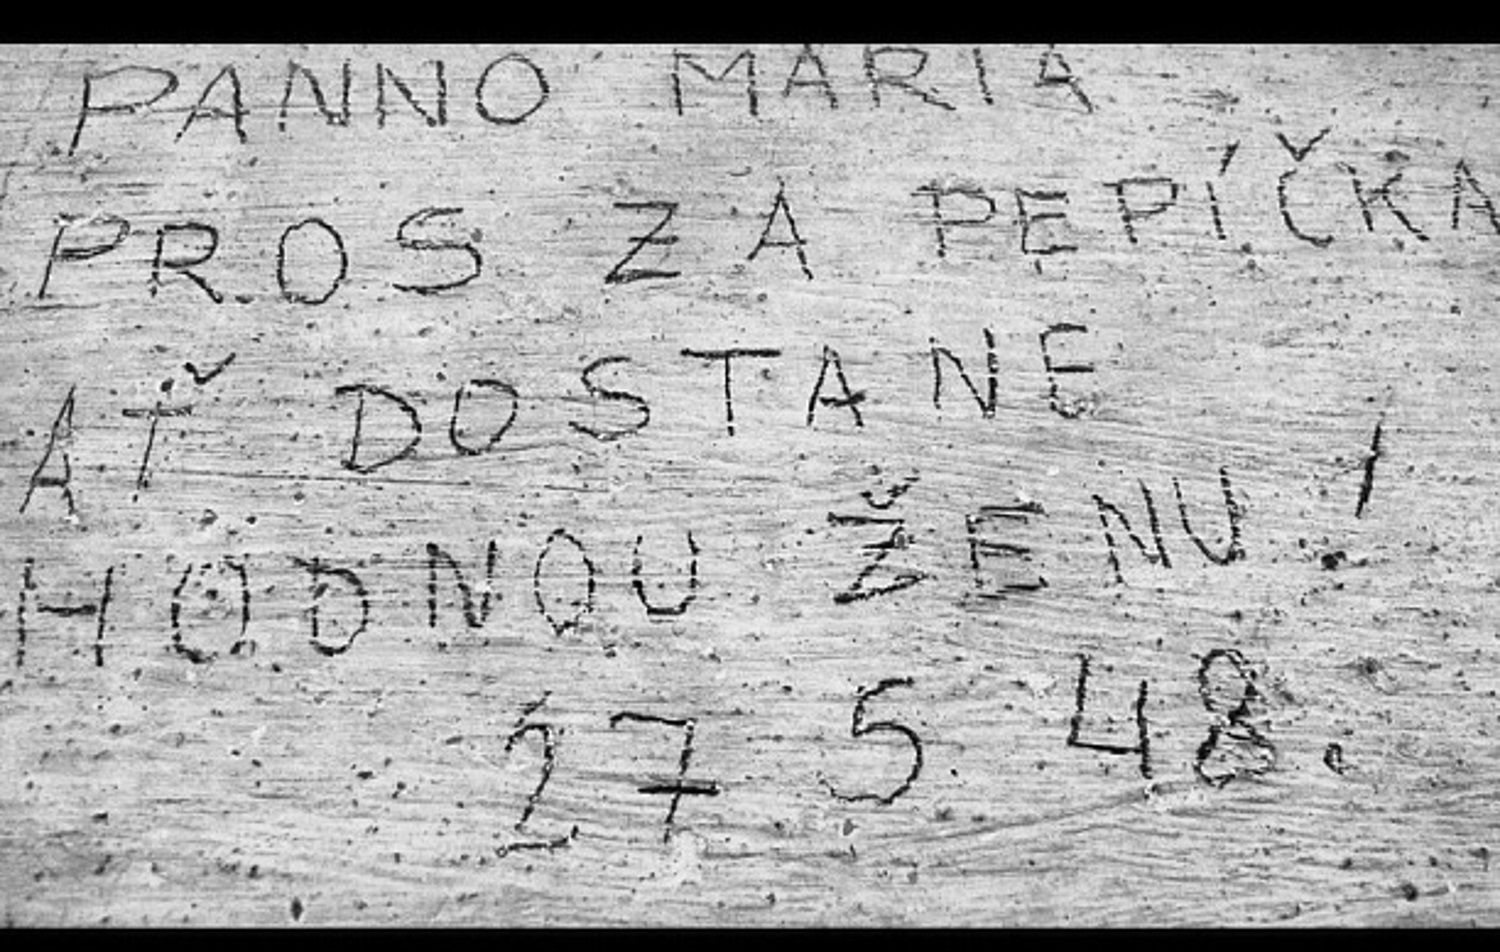 PANNO MARIA
PROS ZA PEPÍČKA
AŤ DOSTANE
HODNOU ŽENU!
27 5 48.